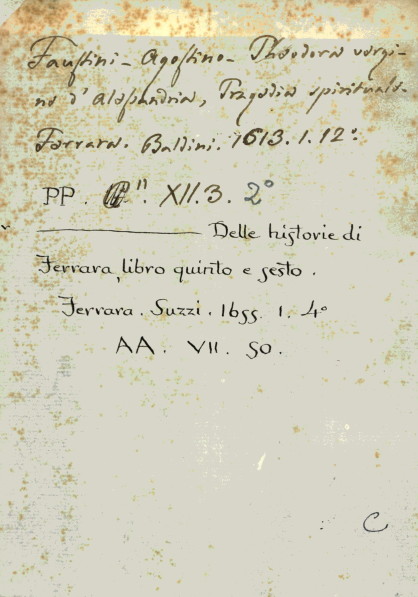 Faustini - Agostino - Theodora vergi-
ne d'Alessandria, Tragedia spirituale.
Ferrara. Baldini. 1613. 1. 12°.
PP. ". XII. 3. 2°
——— Delle historie di
Ferrara, libro quinto e sesto.
Ferrara. Suzzi. 1655. 1. 4°
AA. VII. 50.
C